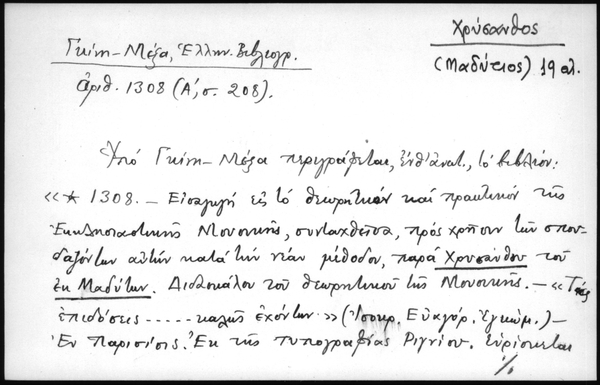 Χρύσανθος
(Μαδύτιος) 19 αι.
Γκίνη-Μέξα, Ἑλλην. Βιβλιογρ.
ἀριθ. 1308 (Α΄, σ. 208).
Ὑπὸ Γκίνη-Μέξα περιγράφεται, ἐνθ' ἀνωτ., τὸ βιβλίον:
«★ 1308. — Εἰσαγωγὴ εἰς τὸ θεωρητικὸν καὶ πρακτικὸν τῆς
Ἐκκλησιαστικῆς Μουσικῆς, συνταχθεῖσα, πρὸς χρῆσιν τῶν σπου-
δαζόντων αὐτὴν κατὰ τὴν νέαν μέθοδον, παρὰ Χρυσάνθου τοῦ
ἐκ Μαδύτων. Διδασκάλου τοῦ θεωρητικοῦ τῆς Μουσικῆς. — «Τὰς
ἐπιδόσεις ..... καλῶς ἐχόντων.» (Ἰσοκρ. Εὐαγόρ. Ἐγκώμ.) —
Ἐν Παρισίοις. Ἐκ τῆς τυπογραφίας Ριγνίου. Εὑρίσκεται
./.